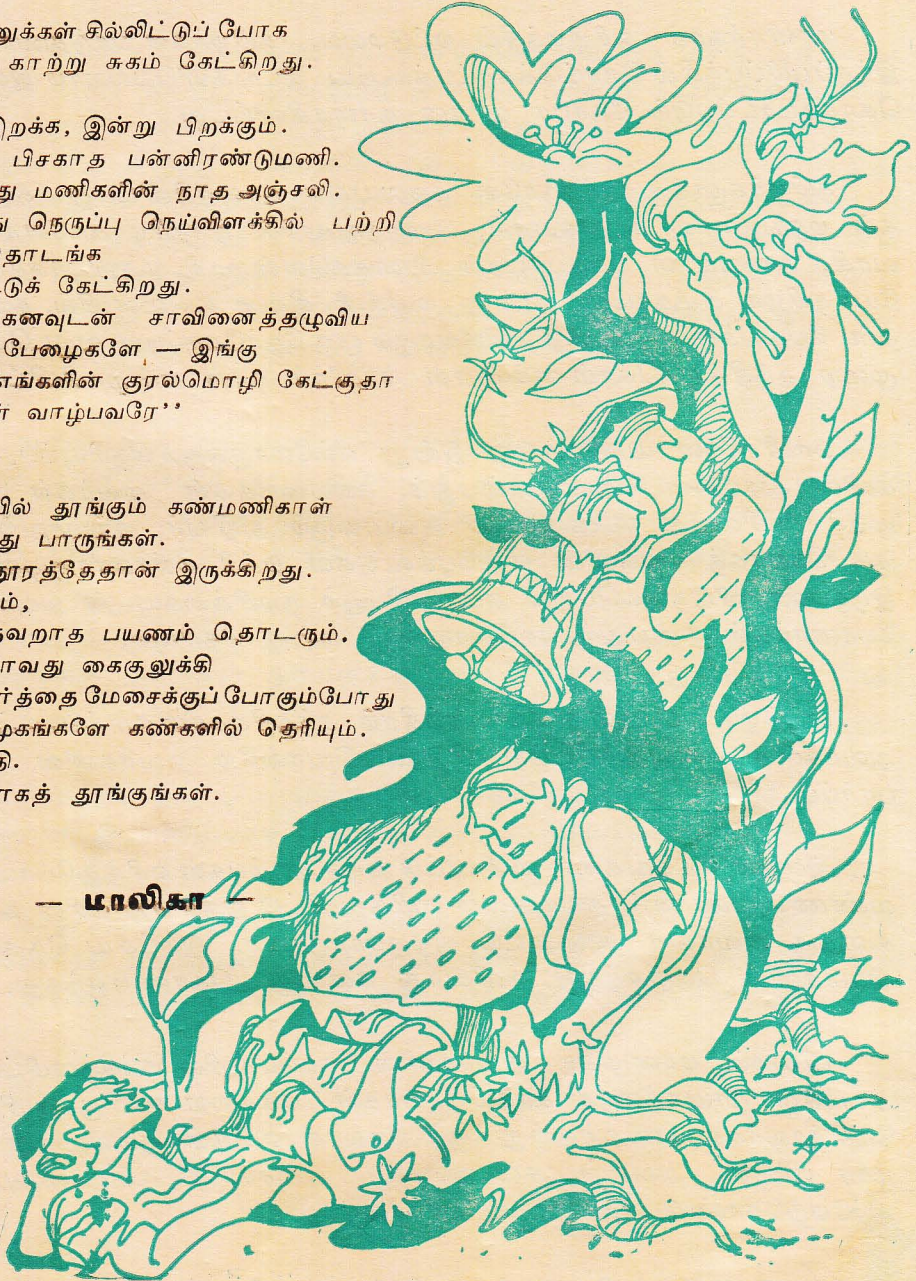 னுக்கள் சில்லிட்டுப் போக
காற்று சுகம் கேட்கிறது.
றக்க, இன்று பிறக்கும்.
பிசகாத பன்னிரண்டுமணி.
து மணிகளின் நாத அஞ்சலி.
நெருப்பு நெய்விளக்கில் பற்றி
தொடங்க
டுக் கேட்கிறது.
கனவுடன் சாவினைத்தழுவிய
பேழைகளே — இங்கு
ளங்களின் குரல்மொழி கேட்குதா
வாழ்பவரே’’
யில் தூங்கும் கண்மணிகாள்
து பாருங்கள்.
தூரத்தேதான் இருக்கிறது.
ம்,
தவறாத பயணம் தொடரும்.
ாவது கைகுலுக்கி
ர்த்தை மேசைக்குப் போகும்போது
முகங்களே கண்களில் தெரியும்.
தி.
ாகத் தூங்குங்கள்.
— மாலிகா —